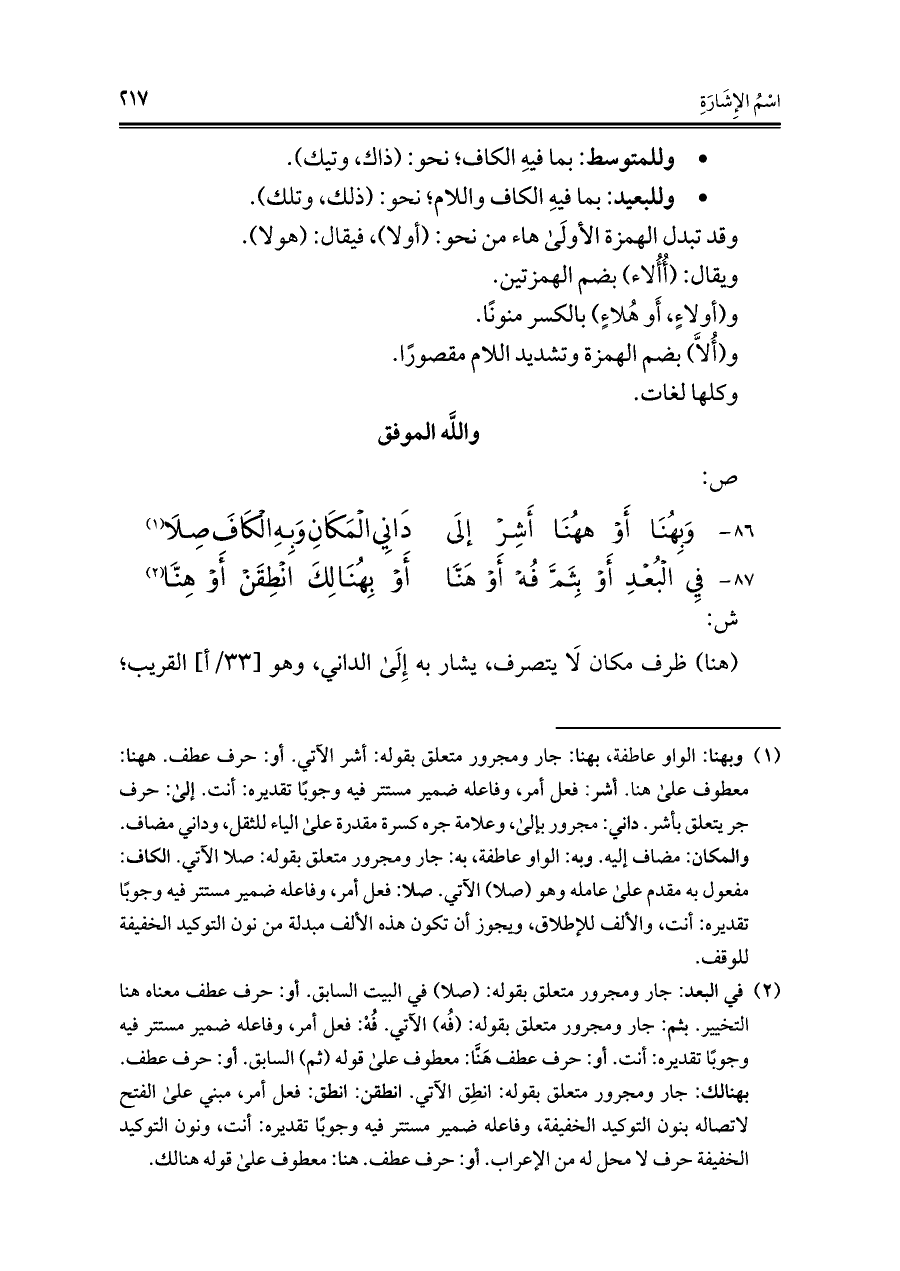 اسْمُ الإِشَارَةِ ٢١٧
• وللمتوسط: بما فيهِ الكاف؛ نحو: (ذاك، وتيك).
• وللبعيد: بما فيهِ الكاف واللام؛ نحو: (ذلك، وتلك).
وقد تبدل الهمزة الأولَىٰ هاء من نحو: (أولا)، فيقال: (هولا).
ويقال: (أُأُلاء) بضم الهمزتين.
و(أولاءٍ، أَو هُلاءٍ) بالكسر منونًا.
و(أُلاَّ) بضم الهمزة وتشديد اللام مقصورًا.
وكلها لغات.
واللَّه الموفق
ص:
٨٦- وَبِهُنَا أَوْ هٰهُنَا أَشِرْ إِلَى دَانِي الْمَكَانِ وَبِهِ الْكَافَ صِلَا(١)
٨٧- فِي الْبُعْدِ أَوْ بِثَمَّ فُهْ أَوْ هَنَّا أَوْ بِهُنَالِكَ انْطِقَنْ أَوْ هِنَّا(٢)
ش:
(هنا) ظرف مكان لَا يتصرف، يشار به إِلَىٰ الداني، وهو [٣٣/ أ] القريب؛
(١) وبهنا: الواو عاطفة، بهنا: جار ومجرور متعلق بقوله: أشر الآتي. أو: حرف عطف. ههنا:
معطوف علىٰ هنا. أشر: فعل أمر، وفاعله ضمير مستتر فيه وجوبًا تقديره: أنت. إلىٰ: حرف
جر يتعلق بأشر. داني: مجرور بإلىٰ، وعلامة جره كسرة مقدرة علىٰ الياء للثقل، وداني مضاف.
والمكان: مضاف إليه. وبه: الواو عاطفة، به: جار ومجرور متعلق بقوله: صلا الآتي. الكاف:
مفعول به مقدم علىٰ عامله وهو (صلا) الآتي. صلا: فعل أمر، وفاعله ضمير مستتر فيه وجوبًا
تقديره: أنت، والألف للإطلاق، ويجوز أن تكون هذه الألف مبدلة من نون التوكيد الخفيفة
للوقف.
(٢) في البعد: جار ومجرور متعلق بقوله: (صلا) في البيت السابق. أو: حرف عطف معناه هنا
التخيير. بثم: جار ومجرور متعلق بقوله: (فُه) الآتي. فُهْ: فعل أمر، وفاعله ضمير مستتر فيه
وجوبًا تقديره: أنت. أو: حرف عطف هَنَّا: معطوف علىٰ قوله (ثم) السابق. أو: حرف عطف.
بهنالك: جار ومجرور متعلق بقوله: انطِق الآتي. انطقن: انطق: فعل أمر، مبني علىٰ الفتح
لاتصاله بنون التوكيد الخفيفة، وفاعله ضمير مستتر فيه وجوبًا تقديره: أنت، ونون التوكيد
الخفيفة حرف لا محل له من الإعراب. أو: حرف عطف. هنا: معطوف علىٰ قوله هنالك.